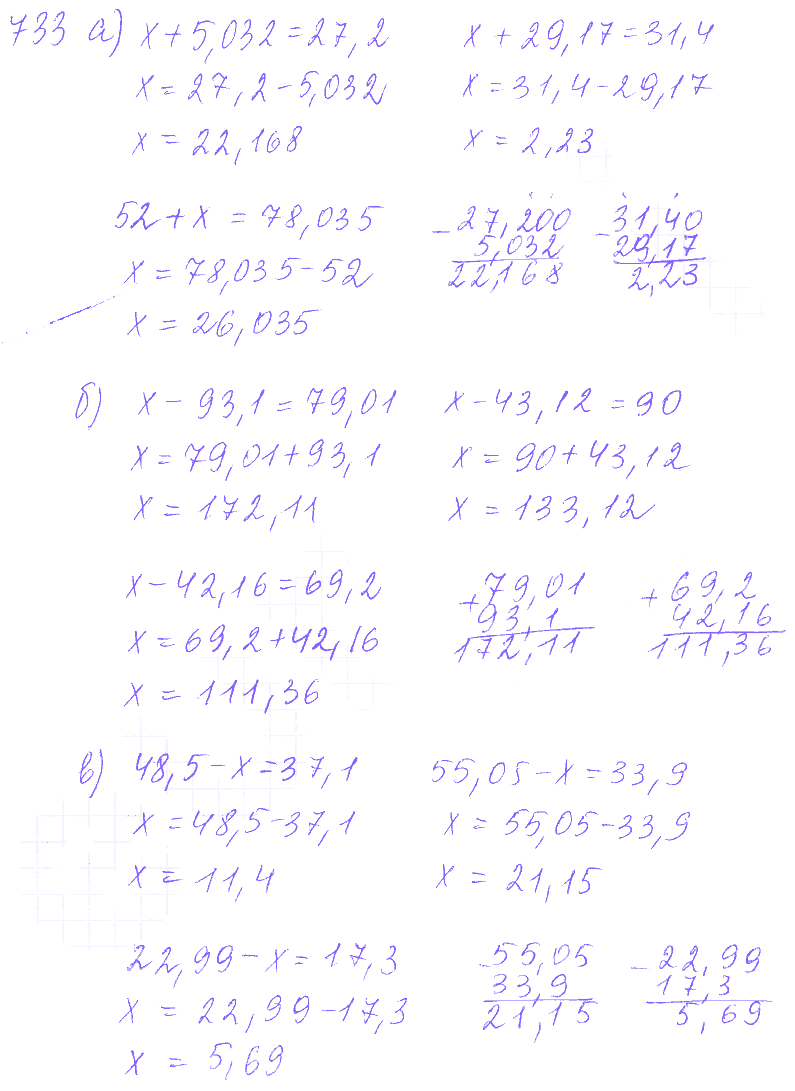 733 а) x + 5,032 = 27,2
x = 27,2 - 5,032
x = 22,168
x + 29,17 = 31,4
x = 31,4 - 29,17
x = 2,23
52 + x = 78,035
x = 78,035 - 52
x = 26,035
- 27,200
5,032
22,168
- 31,40
29,17
2,23
б) x - 93,1 = 79,01
x = 79,01 + 93,1
x = 172,11
x - 43,12 = 90
x = 90 + 43,12
x = 133,12
x - 42,16 = 69,2
x = 69,2 + 42,16
x = 111,36
+ 79,01
93,1
172,11
+ 69,2
42,16
111,36
в) 48,5 - x = 37,1
x = 48,5 - 37,1
x = 11,4
55,05 - x = 33,9
x = 55,05 - 33,9
x = 21,15
22,99 - x = 17,3
x = 22,99 - 17,3
x = 5,69
- 55,05
33,9
21,15
- 22,99
17,3
5,69